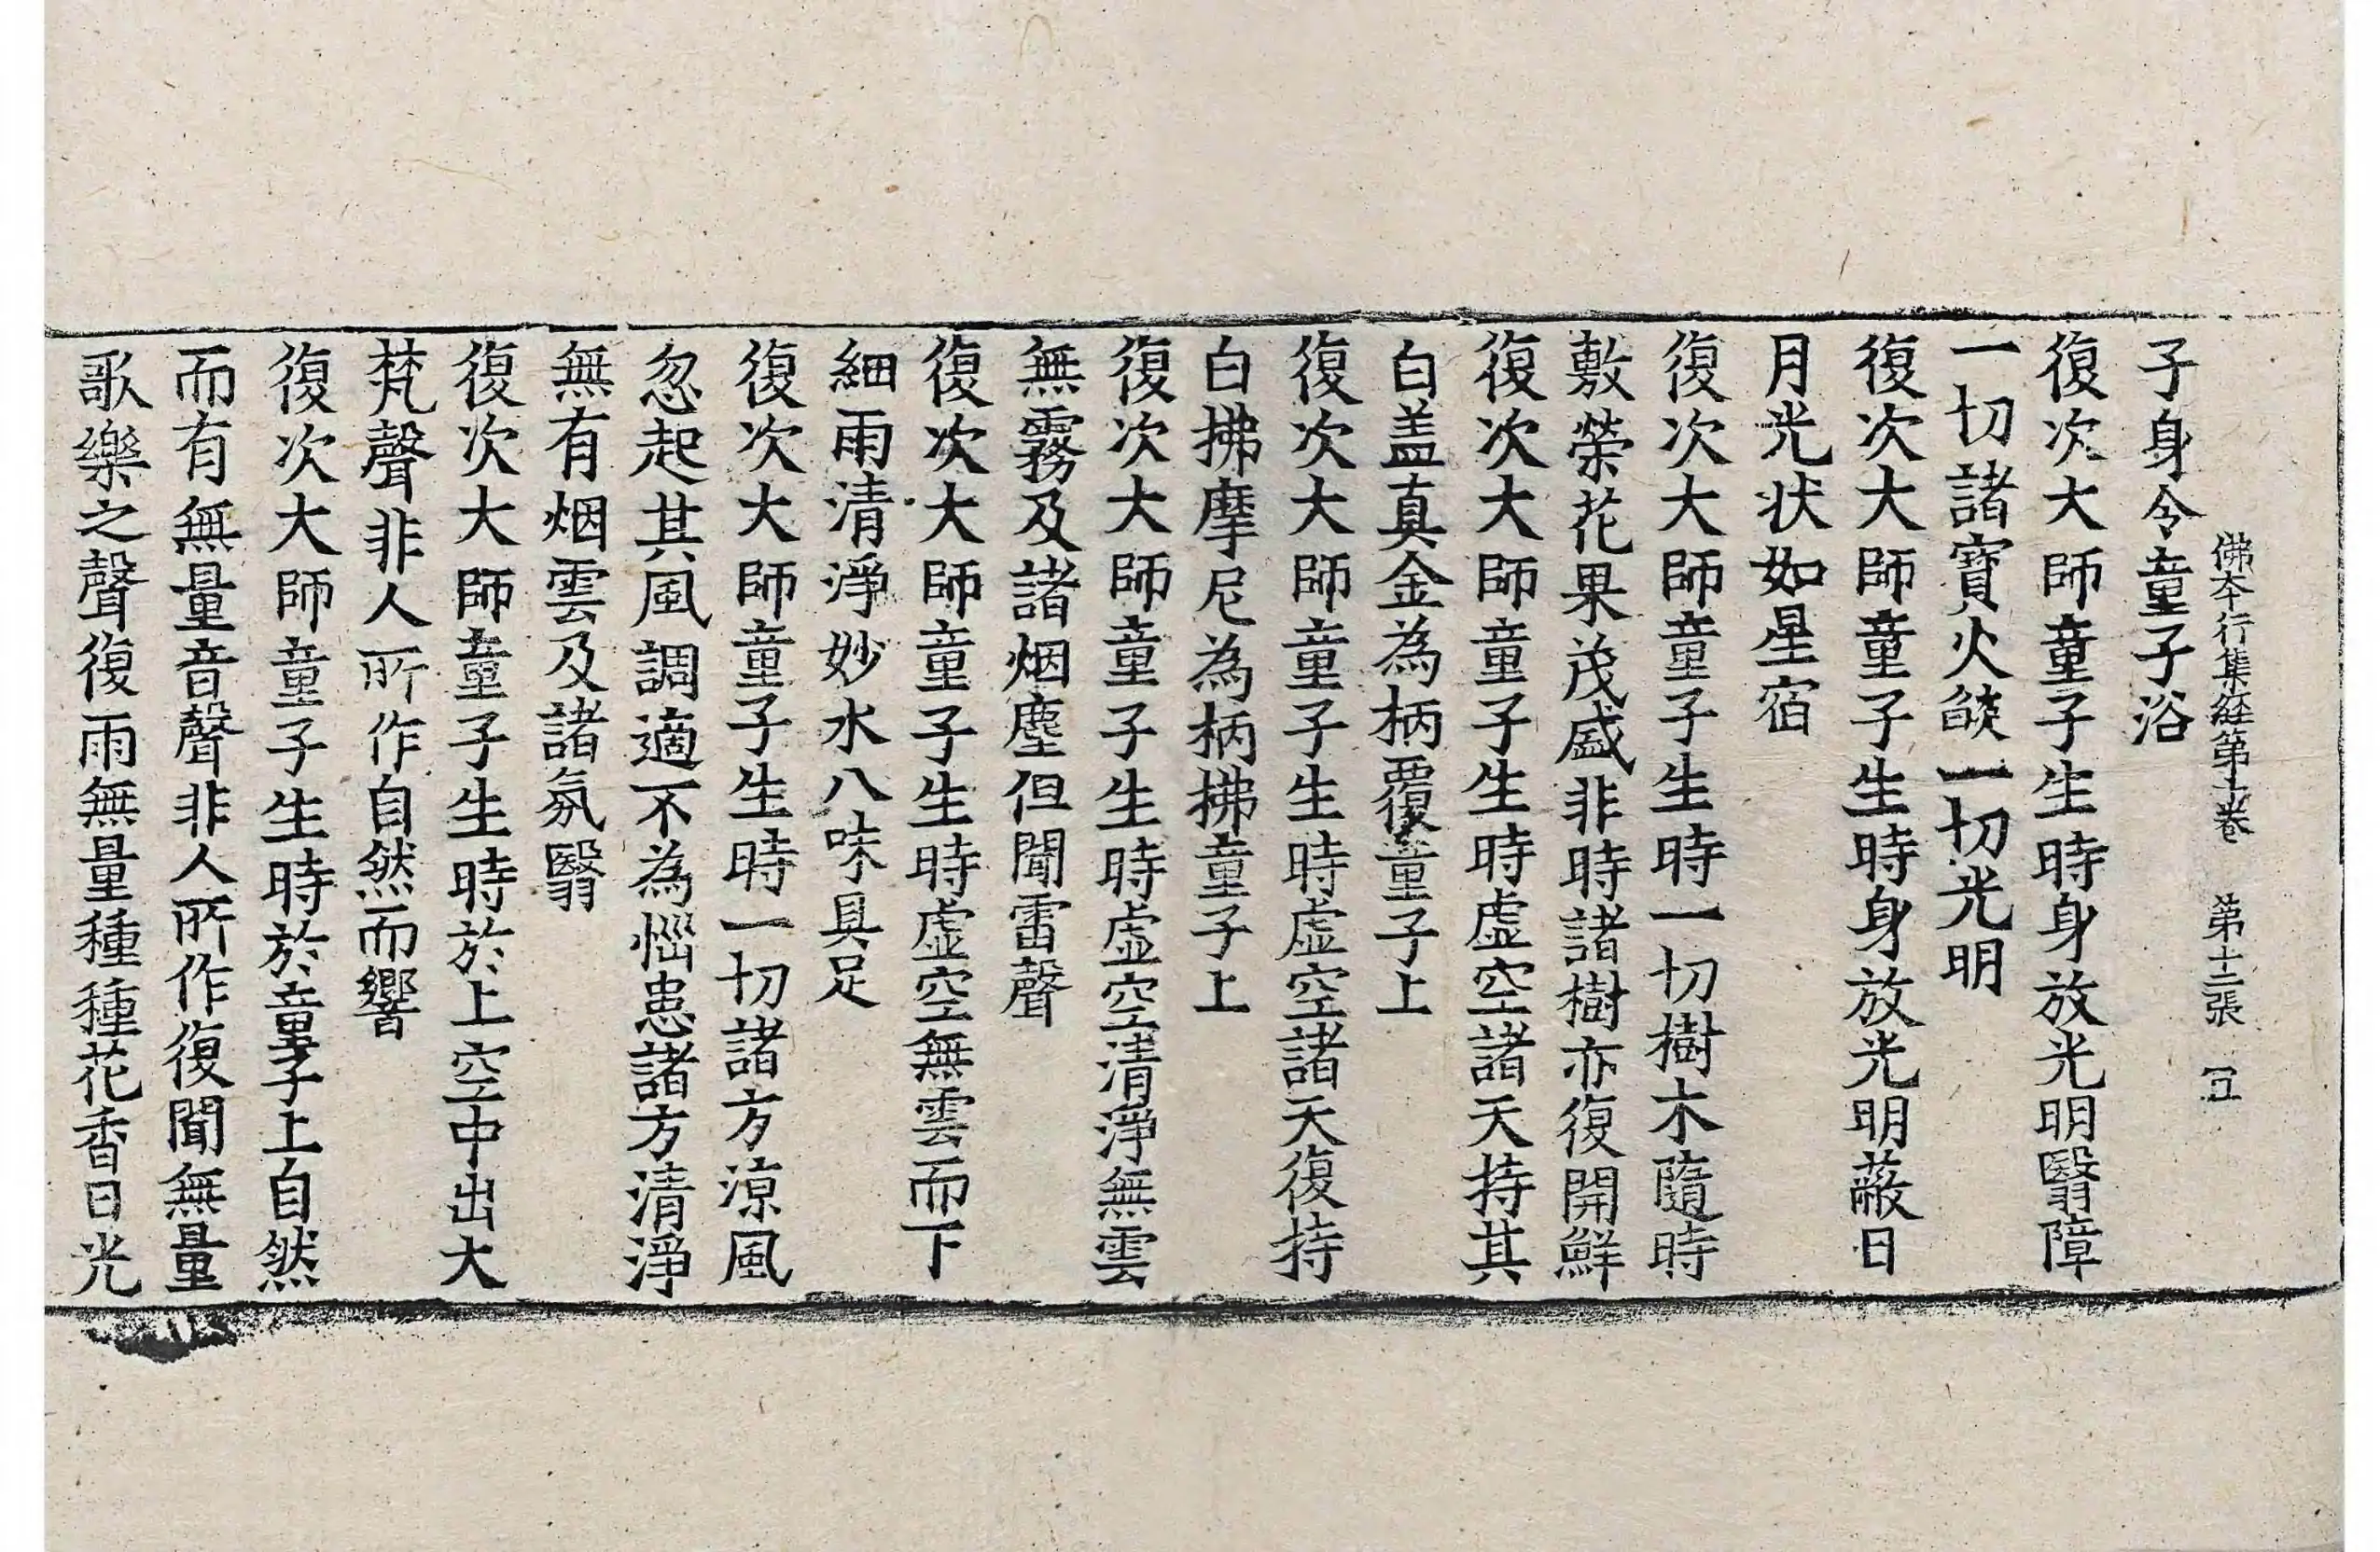 佛本行集經第十卷 第十二張 𠄠
子身令童子浴
復次大師童子生時身放光明翳障
一切諸寶火燄一切光明
復次大師童子生時身放光明蔽日
月光状如星宿
復次大師童子生時一切樹木隨時
敷榮花果茂盛非時諸樹亦復開鮮
復次大師童子生時虛空諸天持其
白盖真金為柄覆童子上
復次大師童子生時虛空諸天復持
白拂摩尼為柄拂童子上
復次大師童子生時虛空清淨無雲
無霧及諸烟塵但聞雷聲
復次大師童子生時虛空無雲而下
細雨清淨妙水八味具足
復次大師童子生時一切諸方涼風
忽起其風調適不為惱患諸方清淨
無有烟雲及諸氛翳
復次大師童子生時於上空中出大
梵聲非人所作自然而響
復次大師童子生時於童子上自然
而有無量音聲非人所作復聞無量
歌樂之聲復雨無量種種花香日光